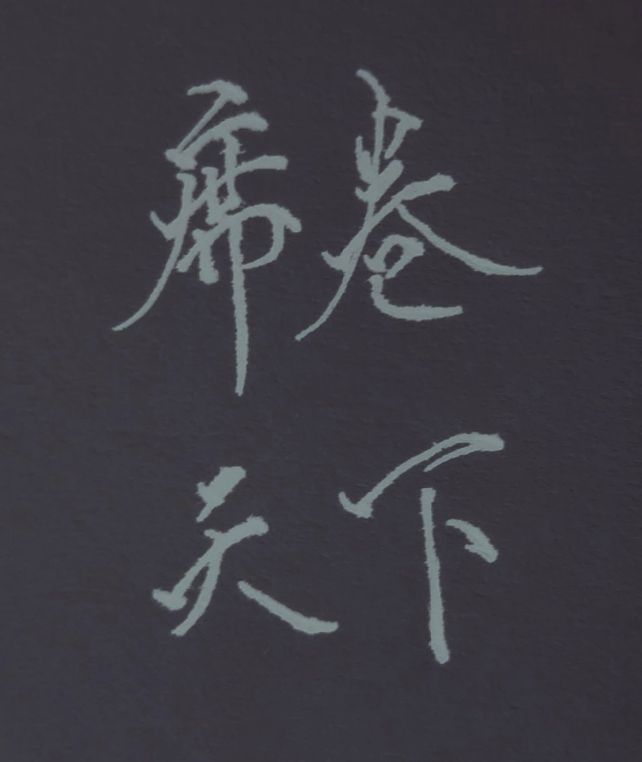 席卷
天下